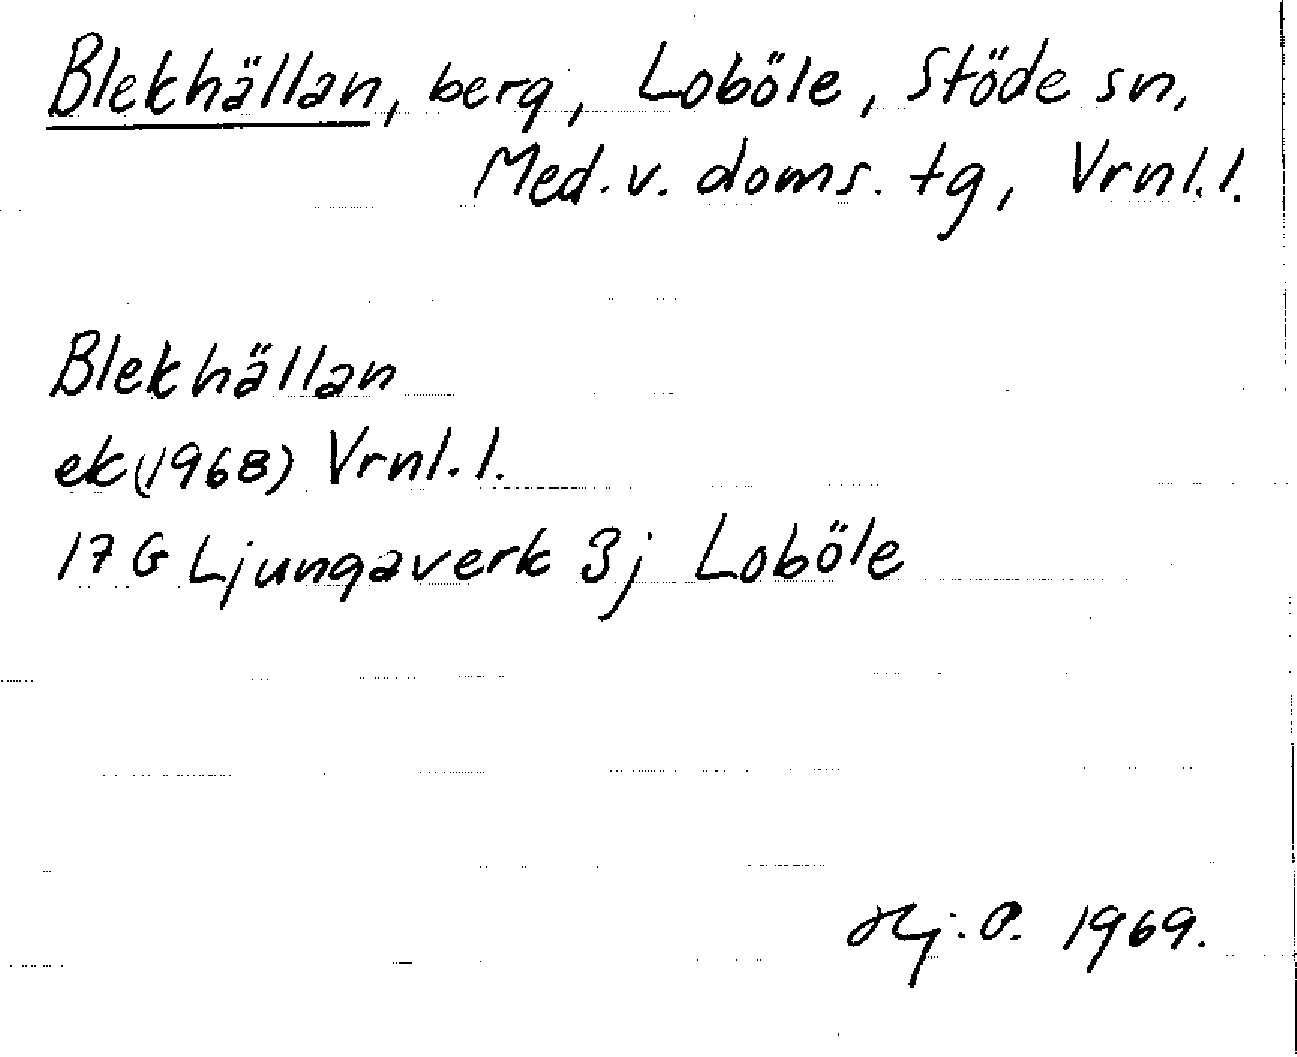 Blekhällan, berg, Loböle, Stöde sn,
Med. v. doms. tg, Vrnl. l.
Blekhällan
ek (1968) Vrnl. l.
17 G Ljungaverk 3j Loböle
Hj. P. 1969.